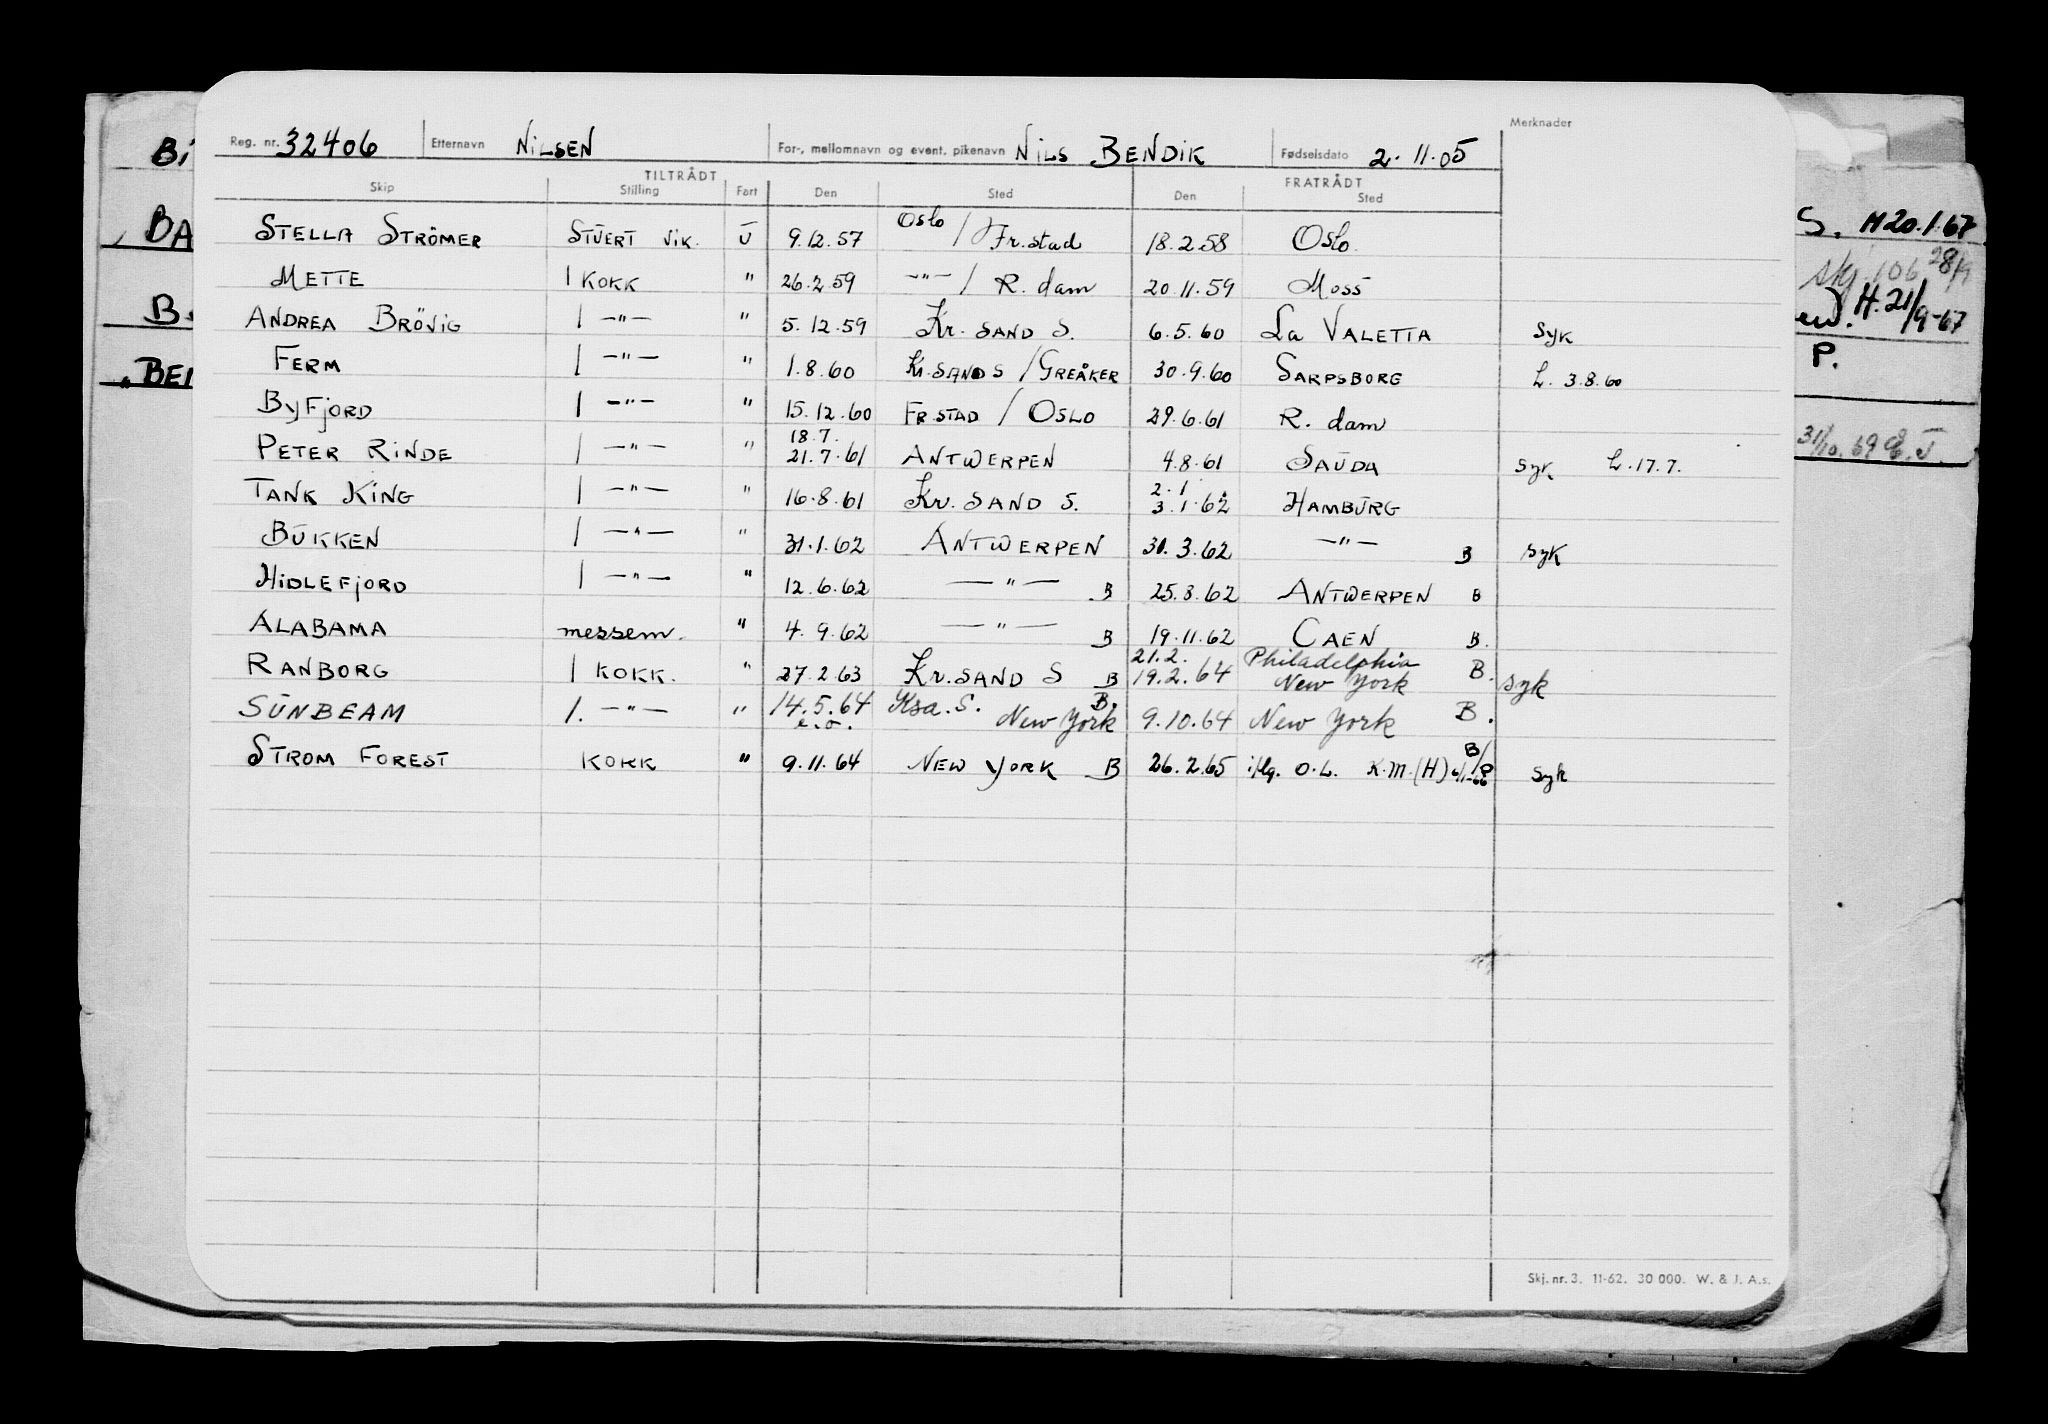 Merknader
Reg. nr. 32406 Etternavn NILSEN For-, mellomnavn og event. pikenavn NILS BENDIK Fødselsdato 2.11.05
TILTRÅDT FRATRÅDT
Skip Stilling Fart Den Sted Den Sted
STELLA STRÖMER STUERT VIK. U 9.12.57 Oslo / Fr.stad 18.2.58 OSLO.
METTE 1 KOKK " 26.2.59 —"— / R. dam 20.11.59 MOSS
ANDREA BRÖVIG 1 —"— " 5.12.59 Kr. SAND S. 6.5.60 La VALETTA syk
FERM 1 —"— " 1.8.60 Kr. SAND S / GREÅKER 30.9.60 SARPSBORG L. 3.8.60
BYFJORD 1 —"— " 15.12.60 FR.STAD / OSLO 29.6.61 R. dam
PETER RINDE 1 —"— " 18.7. 21.7.61 ANTWERPEN 4.8.61 SAUDA syk L.17.7.
TANK KING 1 —"— " 16.8.61 Kr. SAND S. 2.1. 3.1.62 HAMBURG
BUKKEN 1 —"— " 31.1.62 ANTWERPEN 30.3.62 —"— B syk
HIDLEFJORD 1 —"— " 12.6.62 —"— B 25.8.62 ANTWERPEN B
ALABAMA messem. " 4.9.62 —"— B 19.11.62 CAEN B.
RANBORG 1 KOKK. " 27.2.63 Kr. SAND S B 21.2. 19.2.64 Philadelphia New York B. syk
SUNBEAM 1. —"— " 14.5.64 e.o. Ksa. S. New York B. 9.10.64 New York B.
STROM FOREST KOKK " 9.11.64 NEW YORK B 26.2.65 iflg. O.L. K.M.(H) B/P syk
Skj. nr. 3. 11-62. 30 000. W. & J. A.s.
BA
BEI
S. H 20.1.67
skj. 106
H. 21/9-67
P.
31/10.69